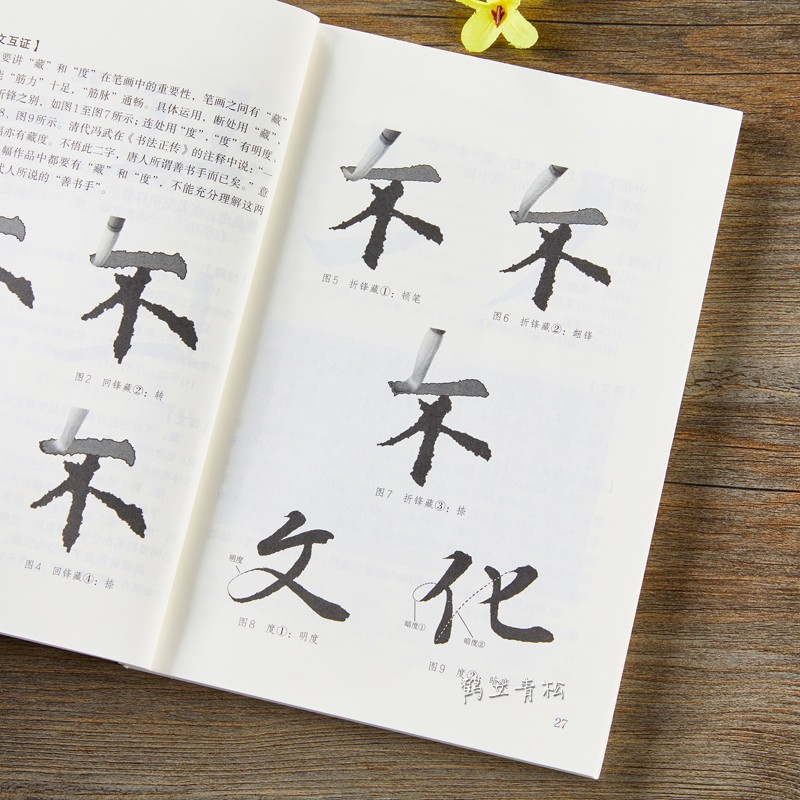 文互证】
要讲“藏”和“度”在笔画中的重要性，笔画之间有“藏”
“筋力”十足，“筋脉”通畅。具体运用，断处用“藏”，
折锋之别，如图1至图7所示；连处用“度”，“度”有明度、
8、图9所示。清代冯武在《书法正传》的注释中说：“一
亦有藏度。不悟此二字，唐人所谓善书手而已矣。”意
幅作品中都要有“藏”和“度”，不能充分理解这两
代人所说的“善书手”。
图2 回锋藏②：转
图4 回锋藏④：捺
不
不
不
图5 折锋藏①：顿笔
不
图6 折锋藏②：翻锋
不
图7 折锋藏③：捺
明度
文
图8 度①：明度
化
暗度①
暗度②
图9 度②
鹤立青松
27